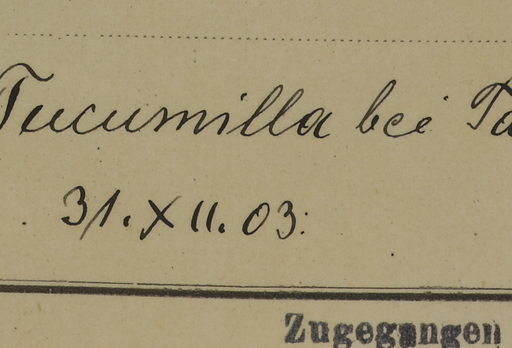 Tucumilla bei Ta
31. XII. 03.
Zugegangen